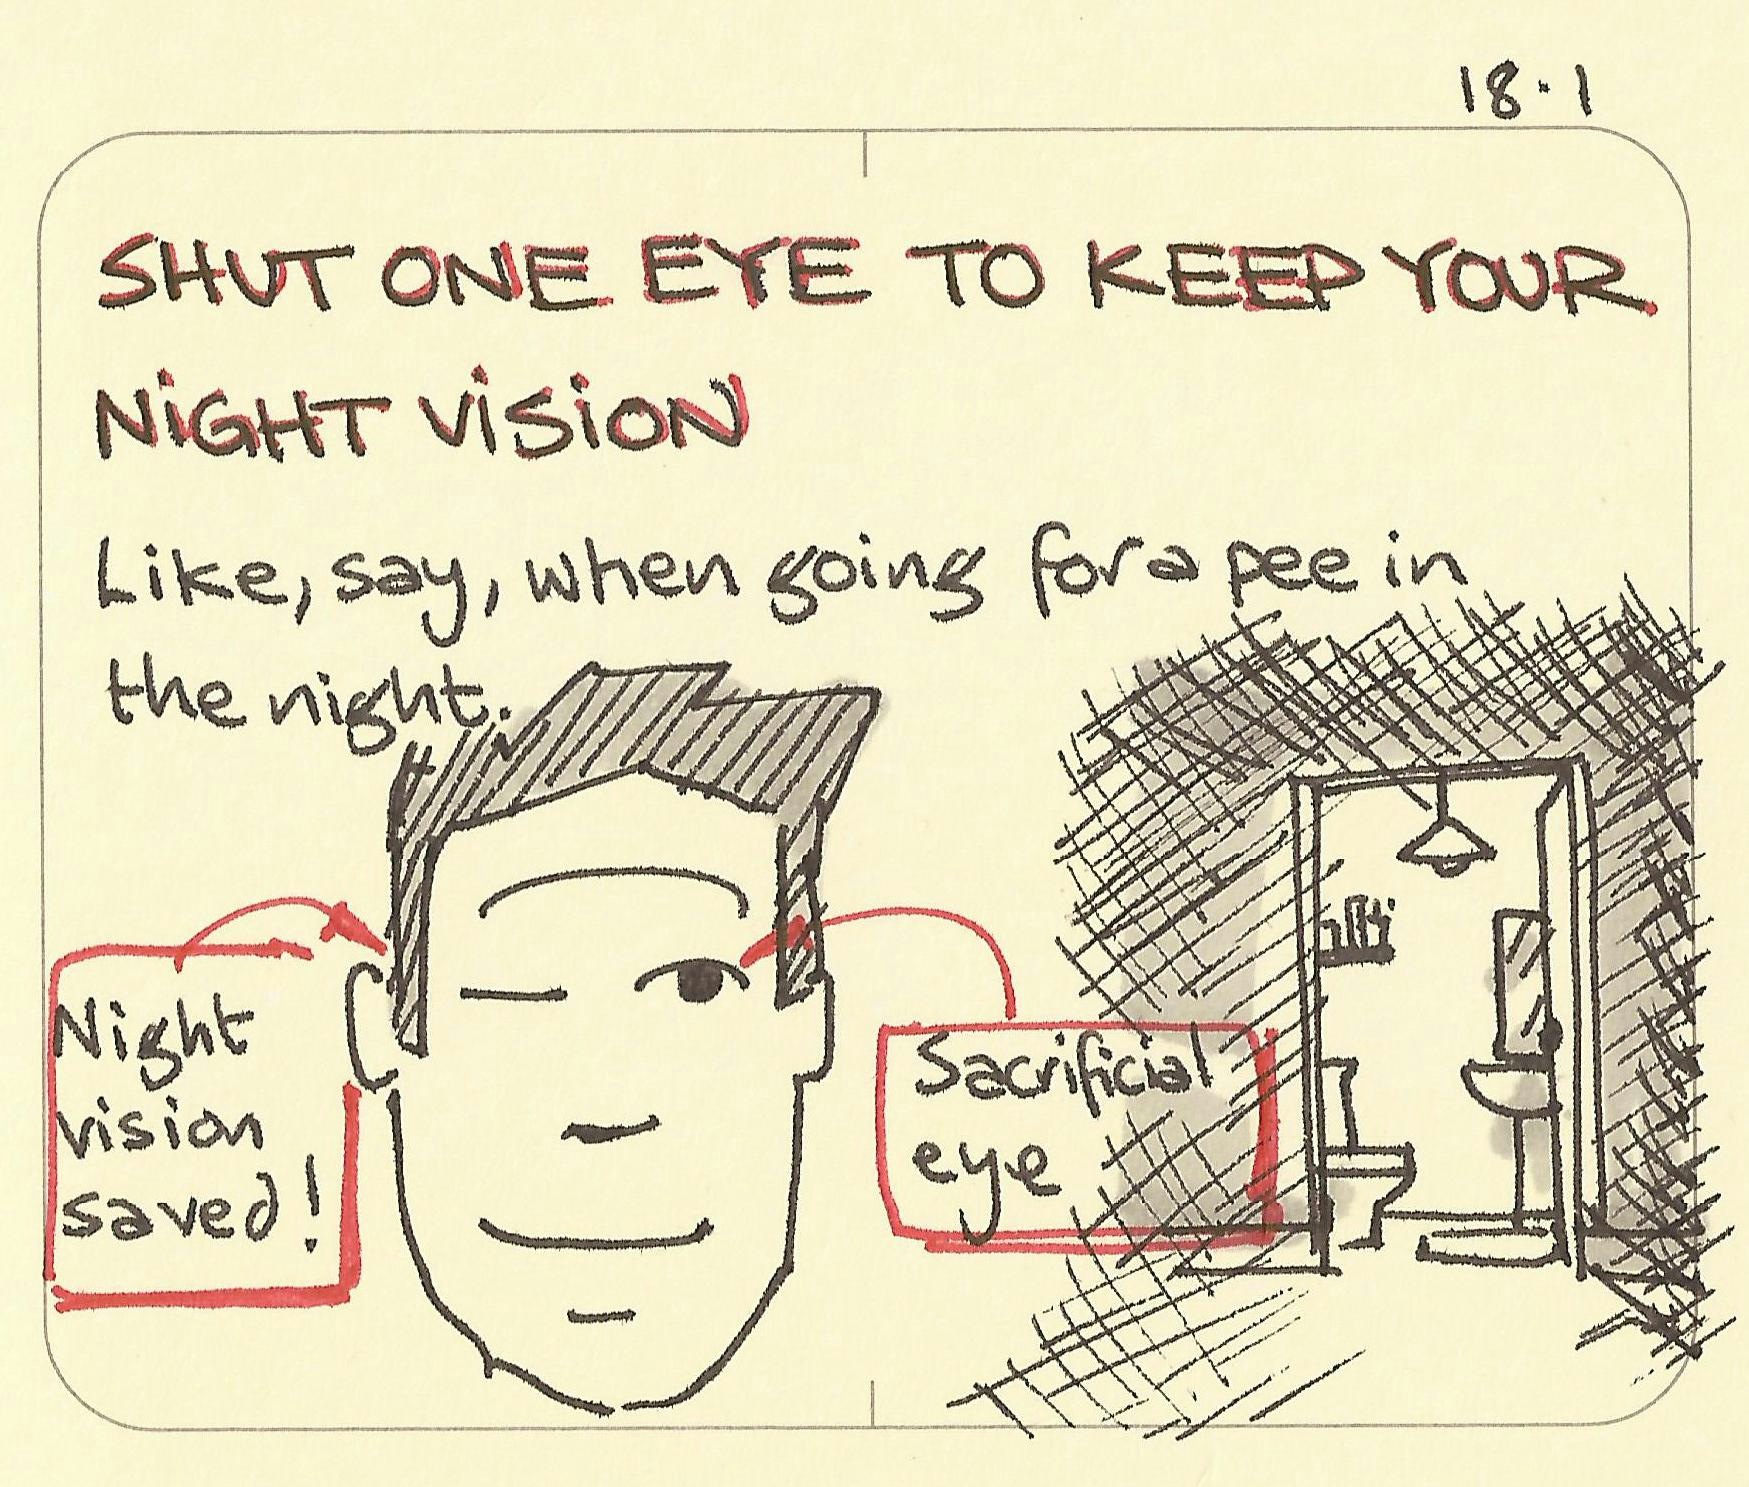 18.1
SHUT ONE EYE TO KEEP YOUR
NIGHT VISION
Like, say, when going for a pee in
the night.
Night
vision
saved!
Sacrificial
eye